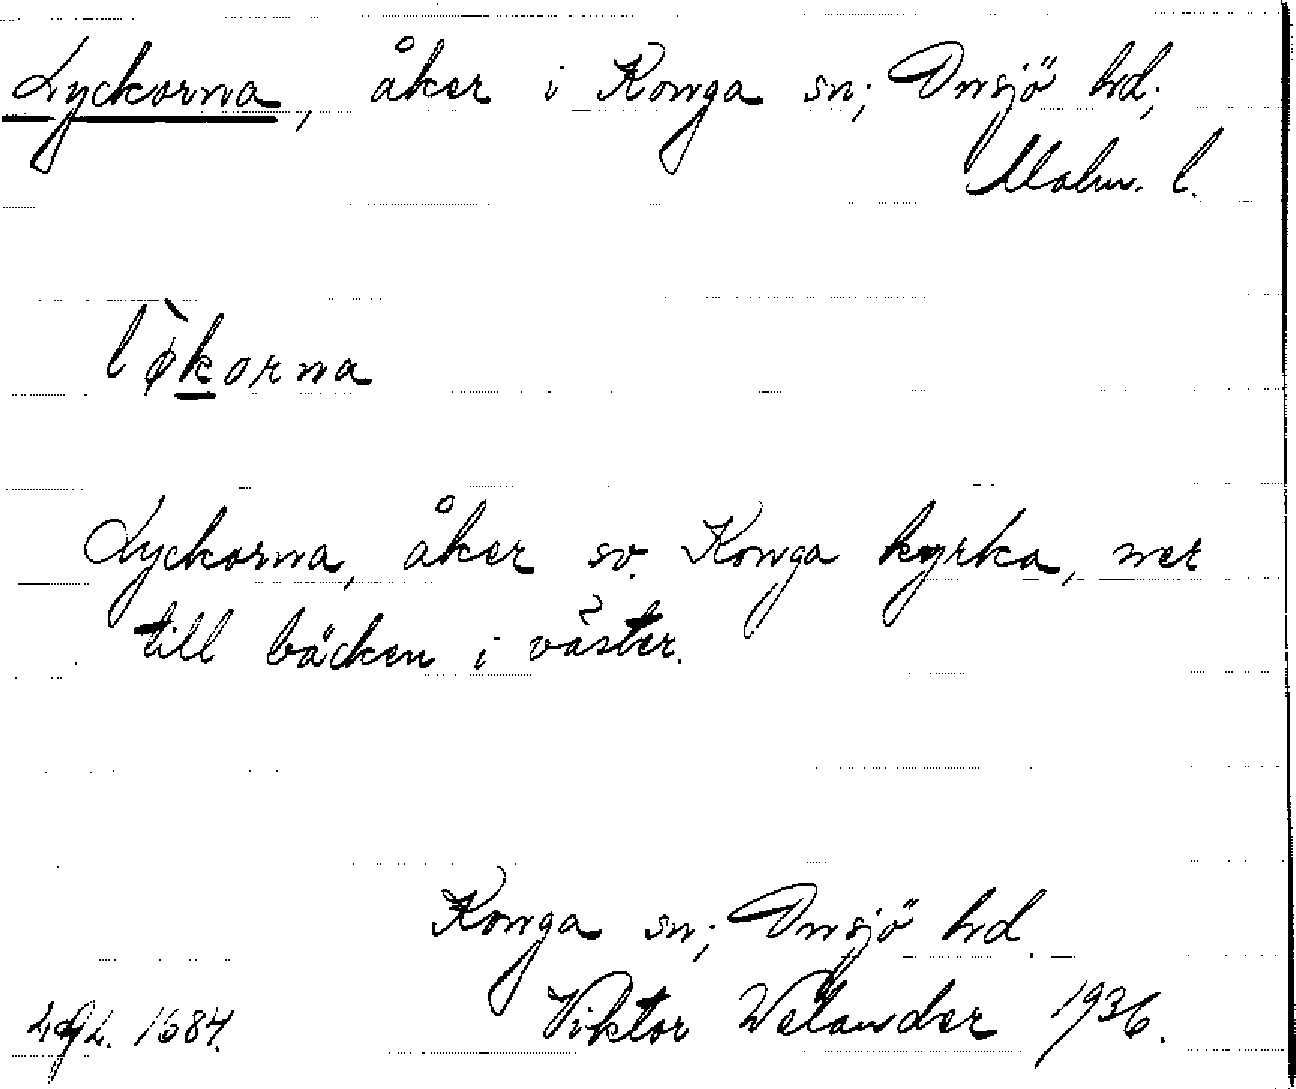 Lyckorna, åker i Konga sn; Onsjö hd;
Malm. l.
lø̀korna
Lyckorna, åker sv. Konga kyrka, ner
till bäcken i väster.
Konga sn; Onsjö hd.
Viktor Welander 1936.
1684.